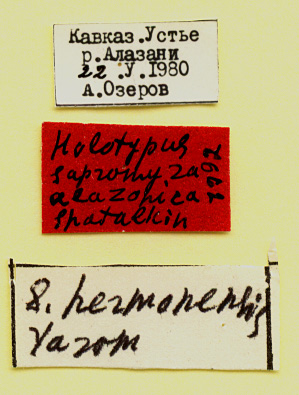 Кавказ.Устье
р.Алазани
22.V.1980
А.Озеров
Holotypus
Sapromyza
alazonica
Shatalkin
1992
S. hermonensis
Yarom